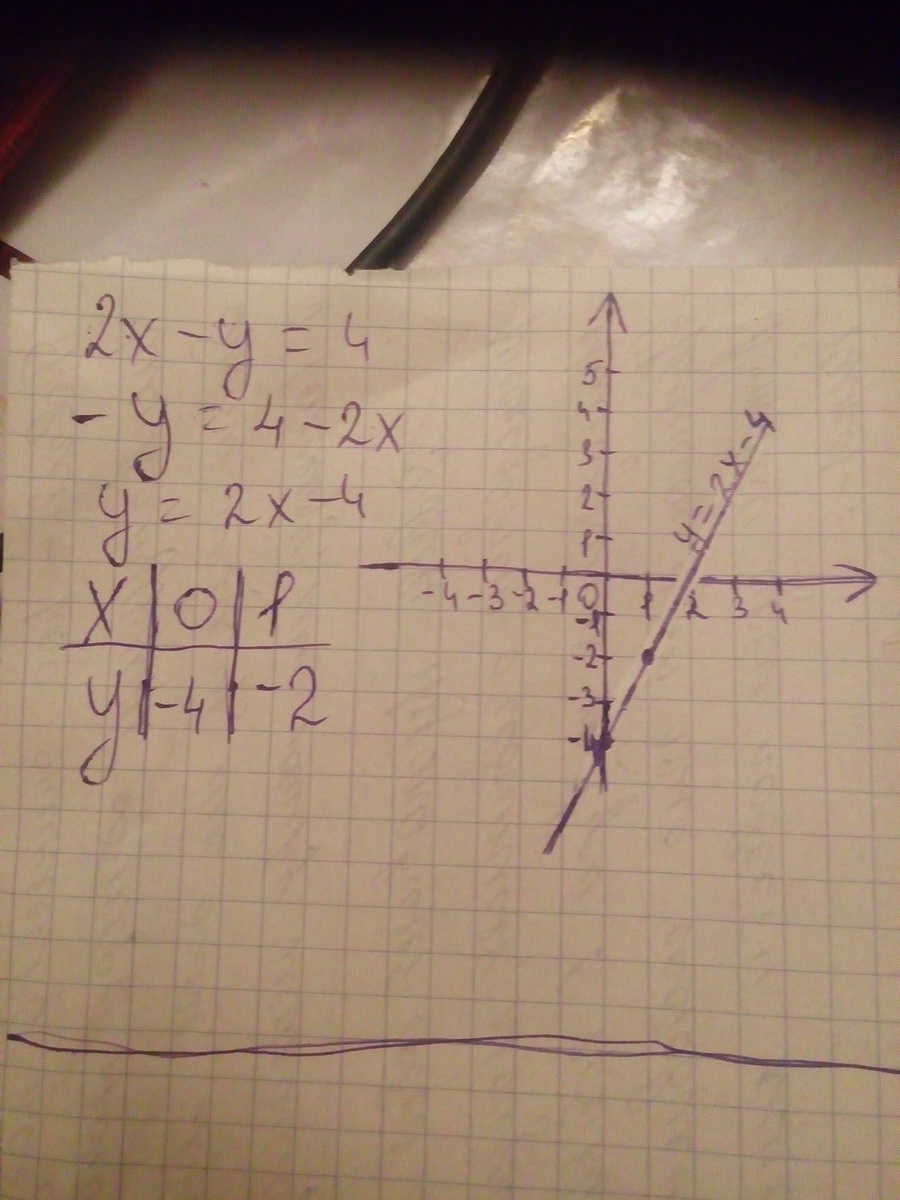 2x - y = 4
- y = 4 - 2x
y = 2x - 4
x | 0 | 1
y | -4 | -2
5
4
3
2
1
-4 -3 -2 -1 0 1 2 3 4
-1
-2
-3
-4
y = 2x - 4